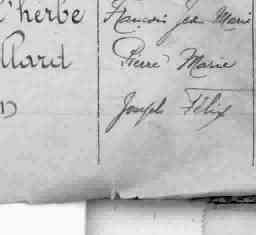 l'herbe François Jean Marie
llard Pierre Marie
Joseph Félix